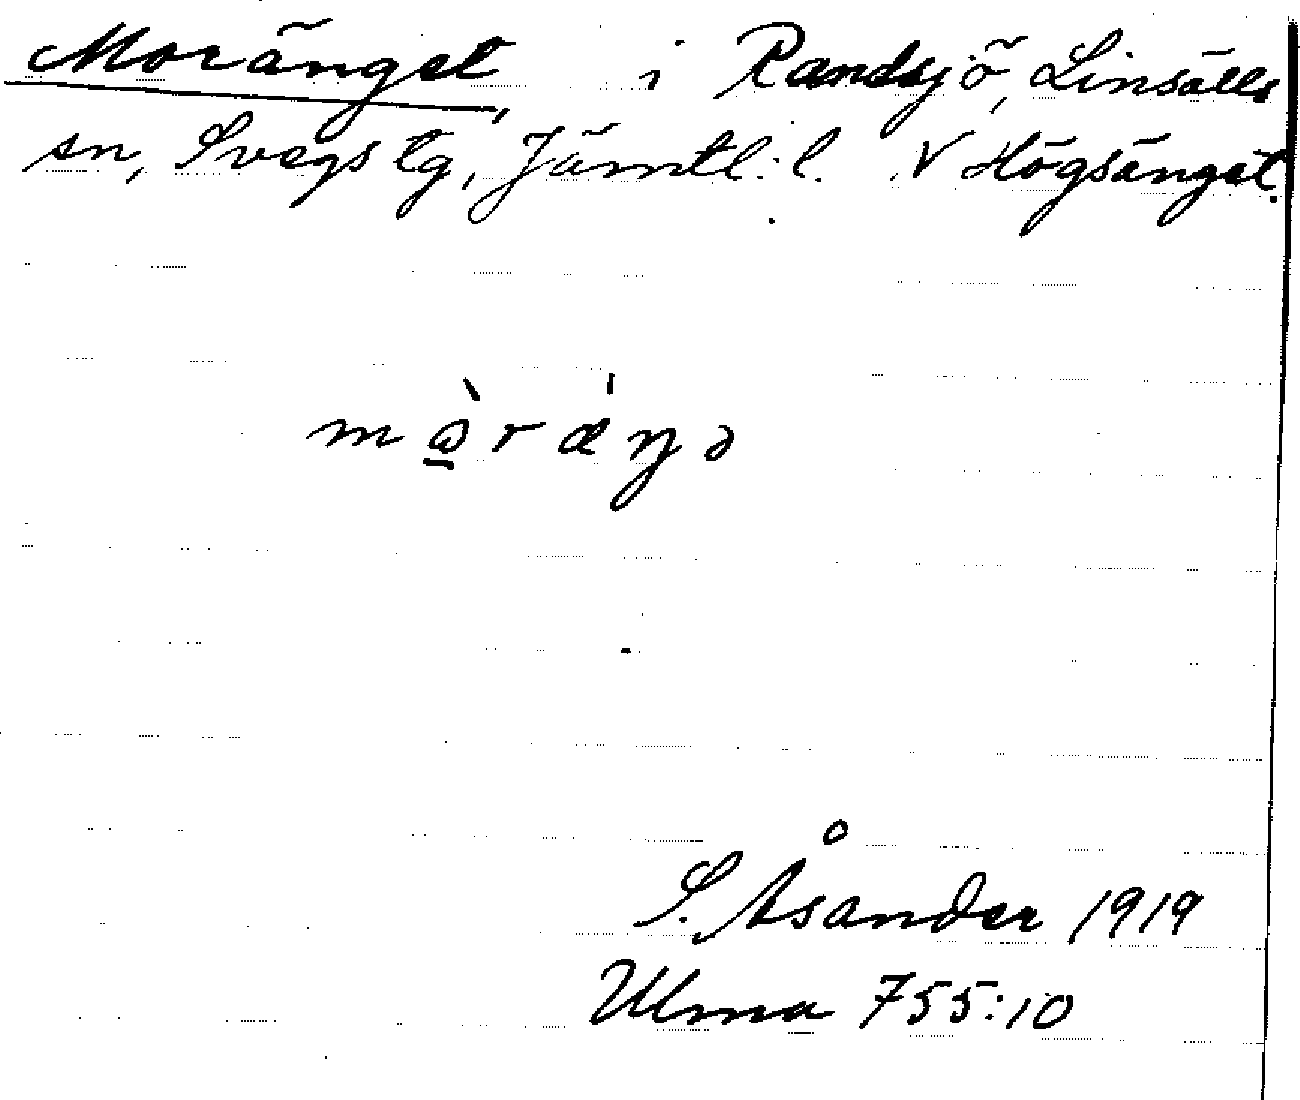 Moränget, i Randsjö, Linsälls
sn, Svegs tg, Jämtl. l. V Högsänget.
mòrǽŋə
S. Åsander 1919
Ulma 755:10